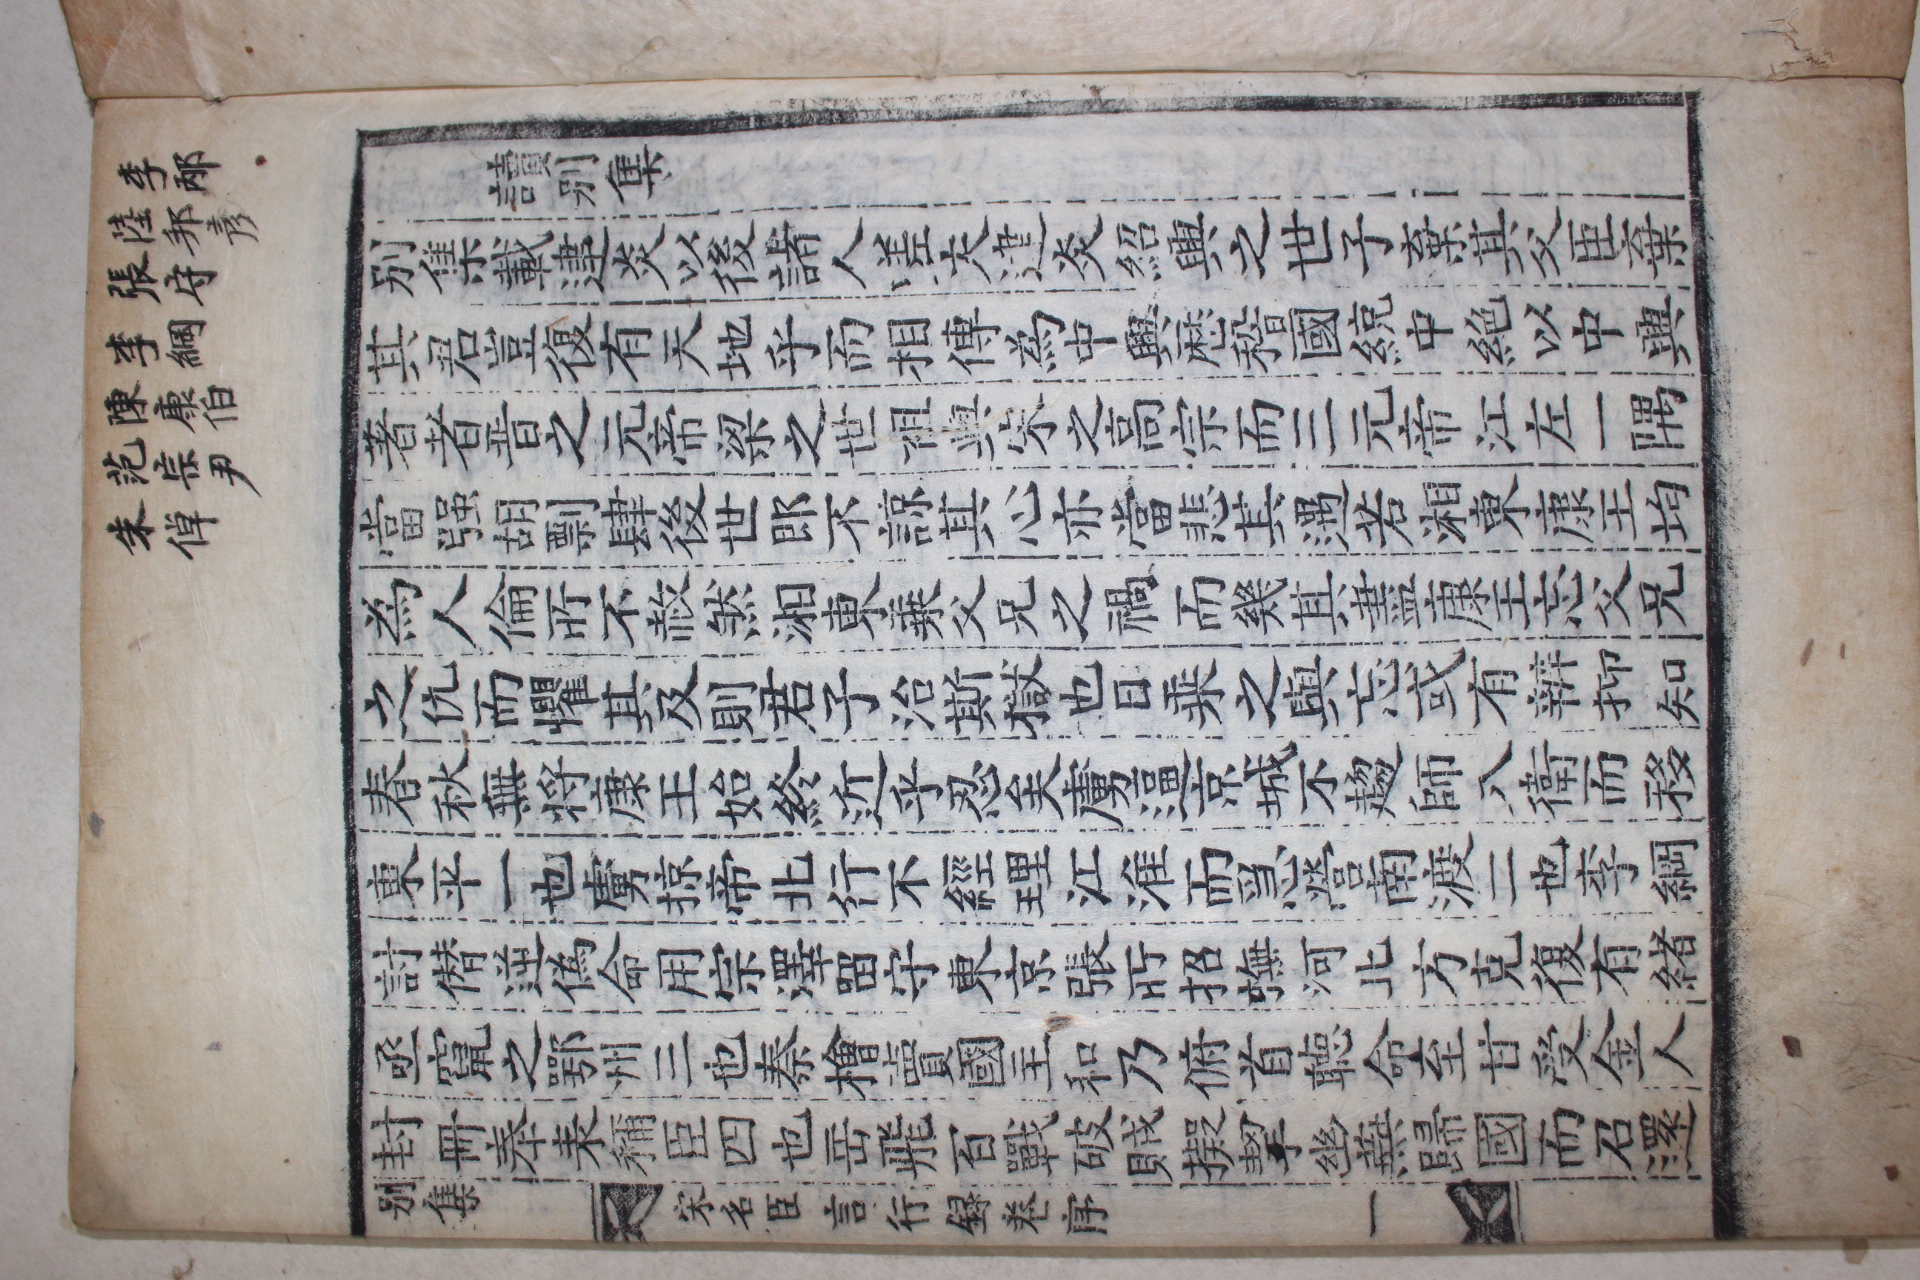 李邴
陸邦彥
張守
李綱
陳康伯
范宗尹
朱倬
讀別集
別集載建炎以後諸人嗟夫建炎紹興之世子棄其父臣棄
其君豈復有天地乎而相傳為中興歷稽國統中絶以中興
著者晋之元帝梁之世祖與宋之高宗而三元帝江左一隅
當强胡剽肆後世即不諒其心亦當悲其遇若湘東康王均
為人倫所不赦然湘東乗父兄之禍而幾其盡康王忘父兄
之仇而懼其及則君子治斯獄也曰乗之與忘或有辨抑知
春秋無將康王始終近乎忍矣虜逼京城不趨師入衛而移
東平一也虜掠帝北行不經理江淮而亟營南渡二也李綱
討僣逆偽命用宗澤留守東京張所招撫河北方克復有緒
亟竄之鄂州三也秦檜賣國主和乃俯首聽命至甘受金人
封冊奉表稱臣四也岳飛百戰破賊擬挈幽燕歸國而召還
別集 宋名臣言行錄卷序 一